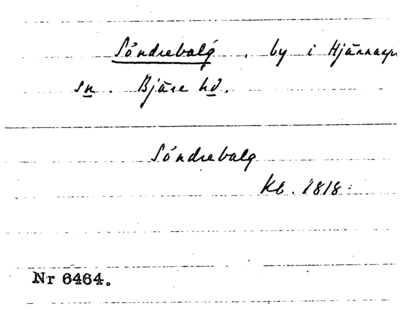 Söndrebalg, by i Hjärnarps
sn. Bjäre hd.
Söndrebalg
Kb. 1818.
Nr 6464.